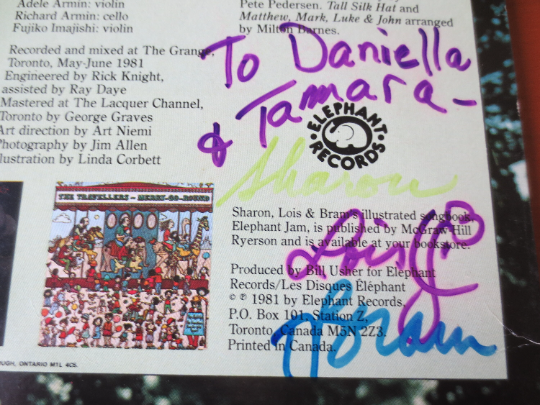 Adele Armin: violin
Richard Armin: cello
Fujiko Imajishi: violin
Recorded and mixed at The Grange,
Toronto, May-June 1981
Engineered by Rick Knight,
assisted by Ray Daye
Mastered at The Lacquer Channel,
Toronto by George Graves
Art direction by Art Niemi
Photography by Jim Allen
Illustration by Linda Corbett
Pete Pedersen. Tall Silk Hat and
Matthew, Mark, Luke & John arranged
by Milton Barnes.
To Daniella
& Tamara-
ELEPHANT
RECORDS
Sharon
THE TRAVELLERS - MERRY-GO-ROUND
Sharon, Lois & Bram's illustrated songbook,
Elephant Jam, is published by McGraw-Hill
Ryerson and is available at your bookstore.
Lois
Produced by Bill Usher for Elephant
Records/Les Disques Éléphant
© ℗ 1981 by Elephant Records,
P.O. Box 101, Station Z,
Toronto, Canada M5N 2Z3.
Printed in Canada.
Bram
OUGH, ONTARIO M1L 4C5.